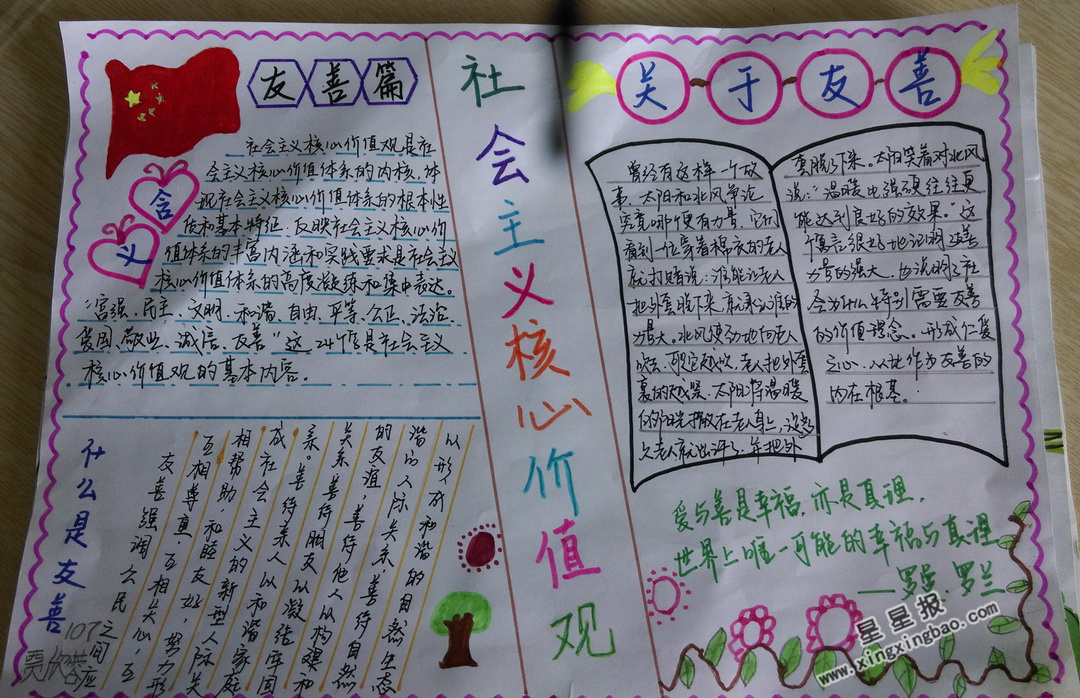 友善篇
含义
社会主义核心价值观是社
会主义核心价值体系的内核,体
现社会主义核心价值体系的根本性
质和基本特征.反映社会主义核心价
值体系的丰富内涵和实践要求是社会主义
核心价值体系的高度凝练和集中表达。
“富强、民主、文明、和谐、自由、平等、公正、法治、
爱国、敬业、诚信、友善”这24个字是社会主义
核心价值观的基本内容。
什么是友善
友善强调公民之间应
互相尊重,互相关心,互
相帮助,和睦友好,努力形
成社会主义的新型人际关
系。善待亲人以和谐家庭
关系,善待朋友以凝结牢固
的友谊,善待他人以构架和
谐的人际关系,善待自然
以形成和谐的自然生态
107
社会主义核心价值观
关于友善
曾经有这样一个故
事,太阳和北风争论
究竟哪个更有力量,它们
看到一位穿着棉衣的老人
就打赌说:谁能让老人
把外套脱下来,就承认谁的
力量大。北风使劲地向老人
吹去,可它越吹,老人把外套
裹的越紧.太阳将温暖
的阳光撒在老人身上,没多
久老人就出汗了,并把外
套脱了下来。太阳笑着对北风
说:“温暖比强硬往往更
能达到良好的效果。”这
个寓言很好地证明友善
力量的强大,也说明了社
会为什么特别需要友善
的价值理念。形成仁爱
之心,以此作为友善的
内在根基。
爱与善是幸福,亦是真理,
世界上唯一可能的幸福与真理
——罗曼.罗兰
星星报
www.xingxingbao.com